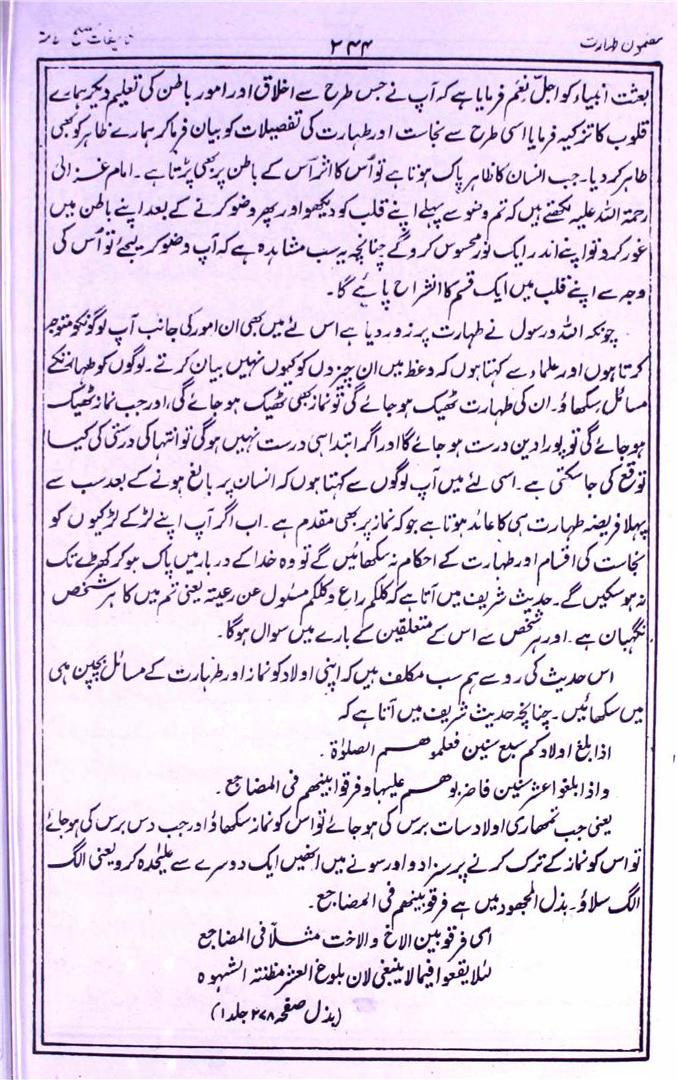 مضمون طہارت
۲۴۴
بعثت انبیاء کو اجلّ نِعَم فرمایا ہے کہ آپ نے جس طرح سے اخلاق اور امور باطن کی تعلیم دیکر ہمارے
قلوب کا تزکیہ فرمایا اسی طرح سے نجاست اور طہارت کی تفصیلات کو بیان فرماکر ہمارے ظاہر کو بھی
طاہر کر دیا۔ جب انسان کا ظاہر پاک ہوتا ہے تو اُس کا اثر اُس کے باطن پر بھی پڑتا ہے۔ امام غزالی
رحمۃ اللہ علیہ لکھتے ہیں کہ تم وضو سے پہلے اپنے قلب کو دیکھو اور پھر وضو کرنے کے بعد اپنے باطن میں
غور کرو تو اپنے اندر ایک نور محسوس کروگے چنانچہ یہ سب مشاہدہ ہے کہ آپ وضو کر لیجئے تو اُس کی
وجہ سے اپنے قلب میں ایک قسم کا انشراح پائیے گا۔
چونکہ اللہ ورسول نے طہارت پر زور دیا ہے اس لئے میں بھی ان امور کی جانب آپ لوگونکو متوجہ
کرتا ہوں اور علماء سے کہتا ہوں کہ وعظ میں ان چیزوں کو کیوں نہیں بیان کرتے۔ لوگوں کو طہارتکے
مسائل سکھاؤ۔ ان کی طہارت ٹھیک ہو جائے گی تو نماز بھی ٹھیک ہو جائے گی، اور جب نماز ٹھیک
ہو جائے گی تو پورا دین درست ہو جائے گا اور اگر ابتدا ہی درست نہیں ہوگی تو انتہا کی درستی کی کیا
توقع کی جا سکتی ہے۔ اسی لئے میں آپ لوگوں سے کہتا ہوں کہ انسان پر بالغ ہونے کے بعد سب سے
پہلا فریضہ طہارت ہی کا عائد ہوتا ہے جو کہ نماز پر بھی مقدم ہے۔ اب اگر آپ اپنے لڑکے لڑکیوں کو
نجاست کی اقسام اور طہارت کے احکام نہ سکھائیں گے تو وہ خدا کے دربار میں پاک ہو کر کھڑے تک
نہ ہو سکیں گے۔ حدیث شریف میں آتا ہے کہ کلکم راع وکلکم مسئول عن رعیتہ یعنی تم میں کا ہر شخص
نگہبان ہے۔ اور ہر شخص سے اس کے متعلقین کے بارے میں سوال ہوگا۔
اس حدیث کی رو سے ہم سب مکلف ہیں کہ اپنی اولاد کو نماز اور طہارت کے مسائل بچپن ہی
میں سکھائیں۔ چنانچہ حدیث شریف میں آتا ہے کہ
اذا بلغ اولادکم سبع سنین فعلموھم الصلوٰۃ۔
واذا بلغوا عشر سنین فاضربوھم علیہا وفرقوا بینھم فی المضاجع۔
یعنی جب تمھاری اولاد سات برس کی ہو جائے تو اس کو نماز سکھاؤ اور جب دس برس کی ہو جائے
تو اس کو نماز کے ترک کرنے پر سزا دو اور سونے میں انھیں ایک دوسرے سے علیحدہ کرو یعنی الگ
الگ سلاؤ۔ بذل المجھود میں ہے فرقوا بینھم فی المضاجع۔
ای فرقوا بین الاخ والاخت مثلاً فی المضاجع
لئلا یقعوا فیما لا ینبغی لان بلوغ العشر مظنتہ الشہوہ
(بذل صفحہ ۲۷۸ جلد ۱)